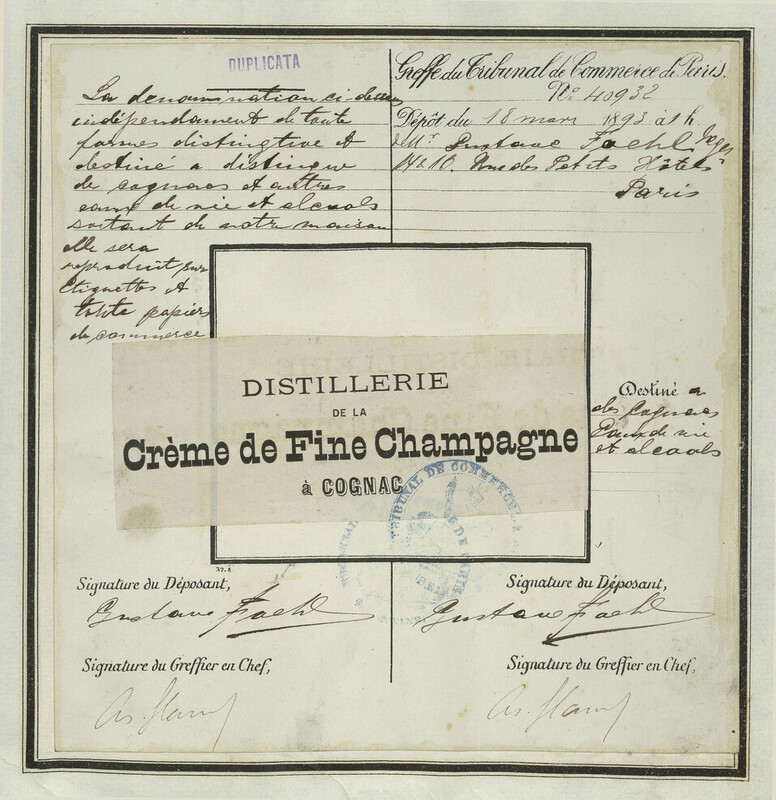 DUPLICATA
La denomination ci dessus
indépendament de toute
formes distinctive et
destiné a distingue
des cognacs et autres
eaux de vie et alcools
sortant de notre maison
elle sera
reproduit sur
étiquettes et
toute papiers
de commerce
Greffe du Tribunal de Commerce de Paris.
No 40932
Dépôt du 18 mars 1893 à 1 h.
de Mr. Gustave Foehl
14 & 16. Rue des Petits Hôtels
Paris
DISTILLERIE
DE LA
Crème de Fine Champagne
à COGNAC
Destiné a
des Cognacs
Eaux de vie
et alcools
TRIBUNAL DE COMMERCE
Signature du Déposant,
Gustave Foehl
Signature du Greffier en Chef,
Signature du Déposant,
Gustave Foehl
Signature du Greffier en Chef,